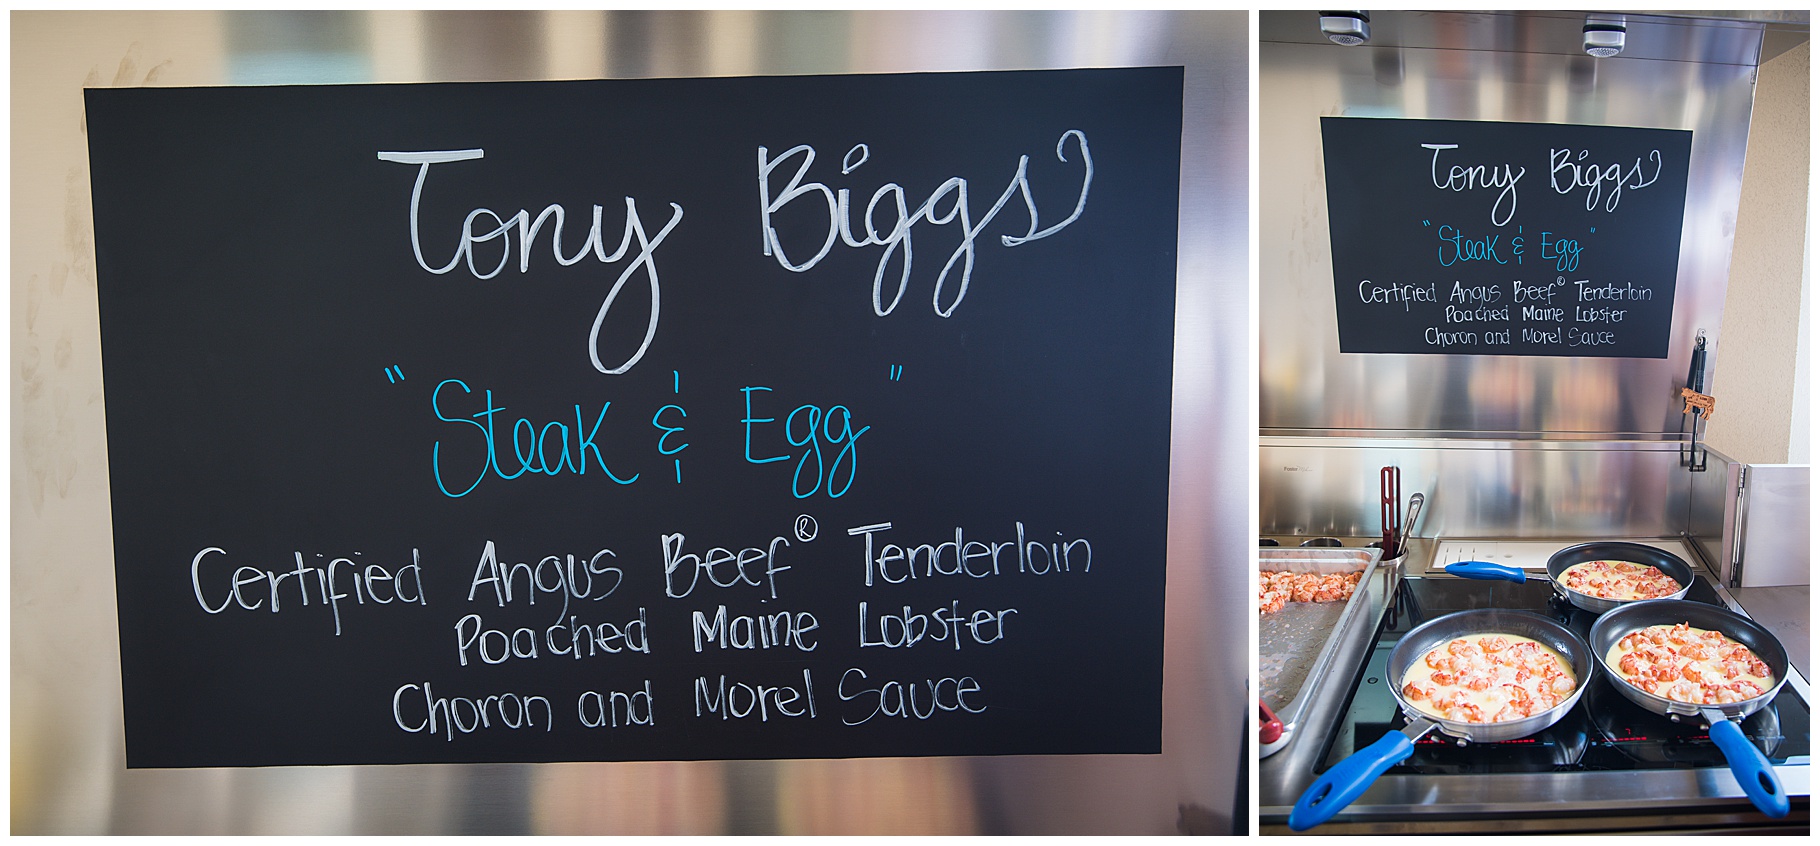 Tony Biggs
"Steak & Egg"
Certified Angus Beef® Tenderloin
Poached Maine Lobster
Choron and Morel Sauce
Tony Biggs
"Steak & Egg"
Certified Angus Beef® Tenderloin
Poached Maine Lobster
Choron and Morel Sauce